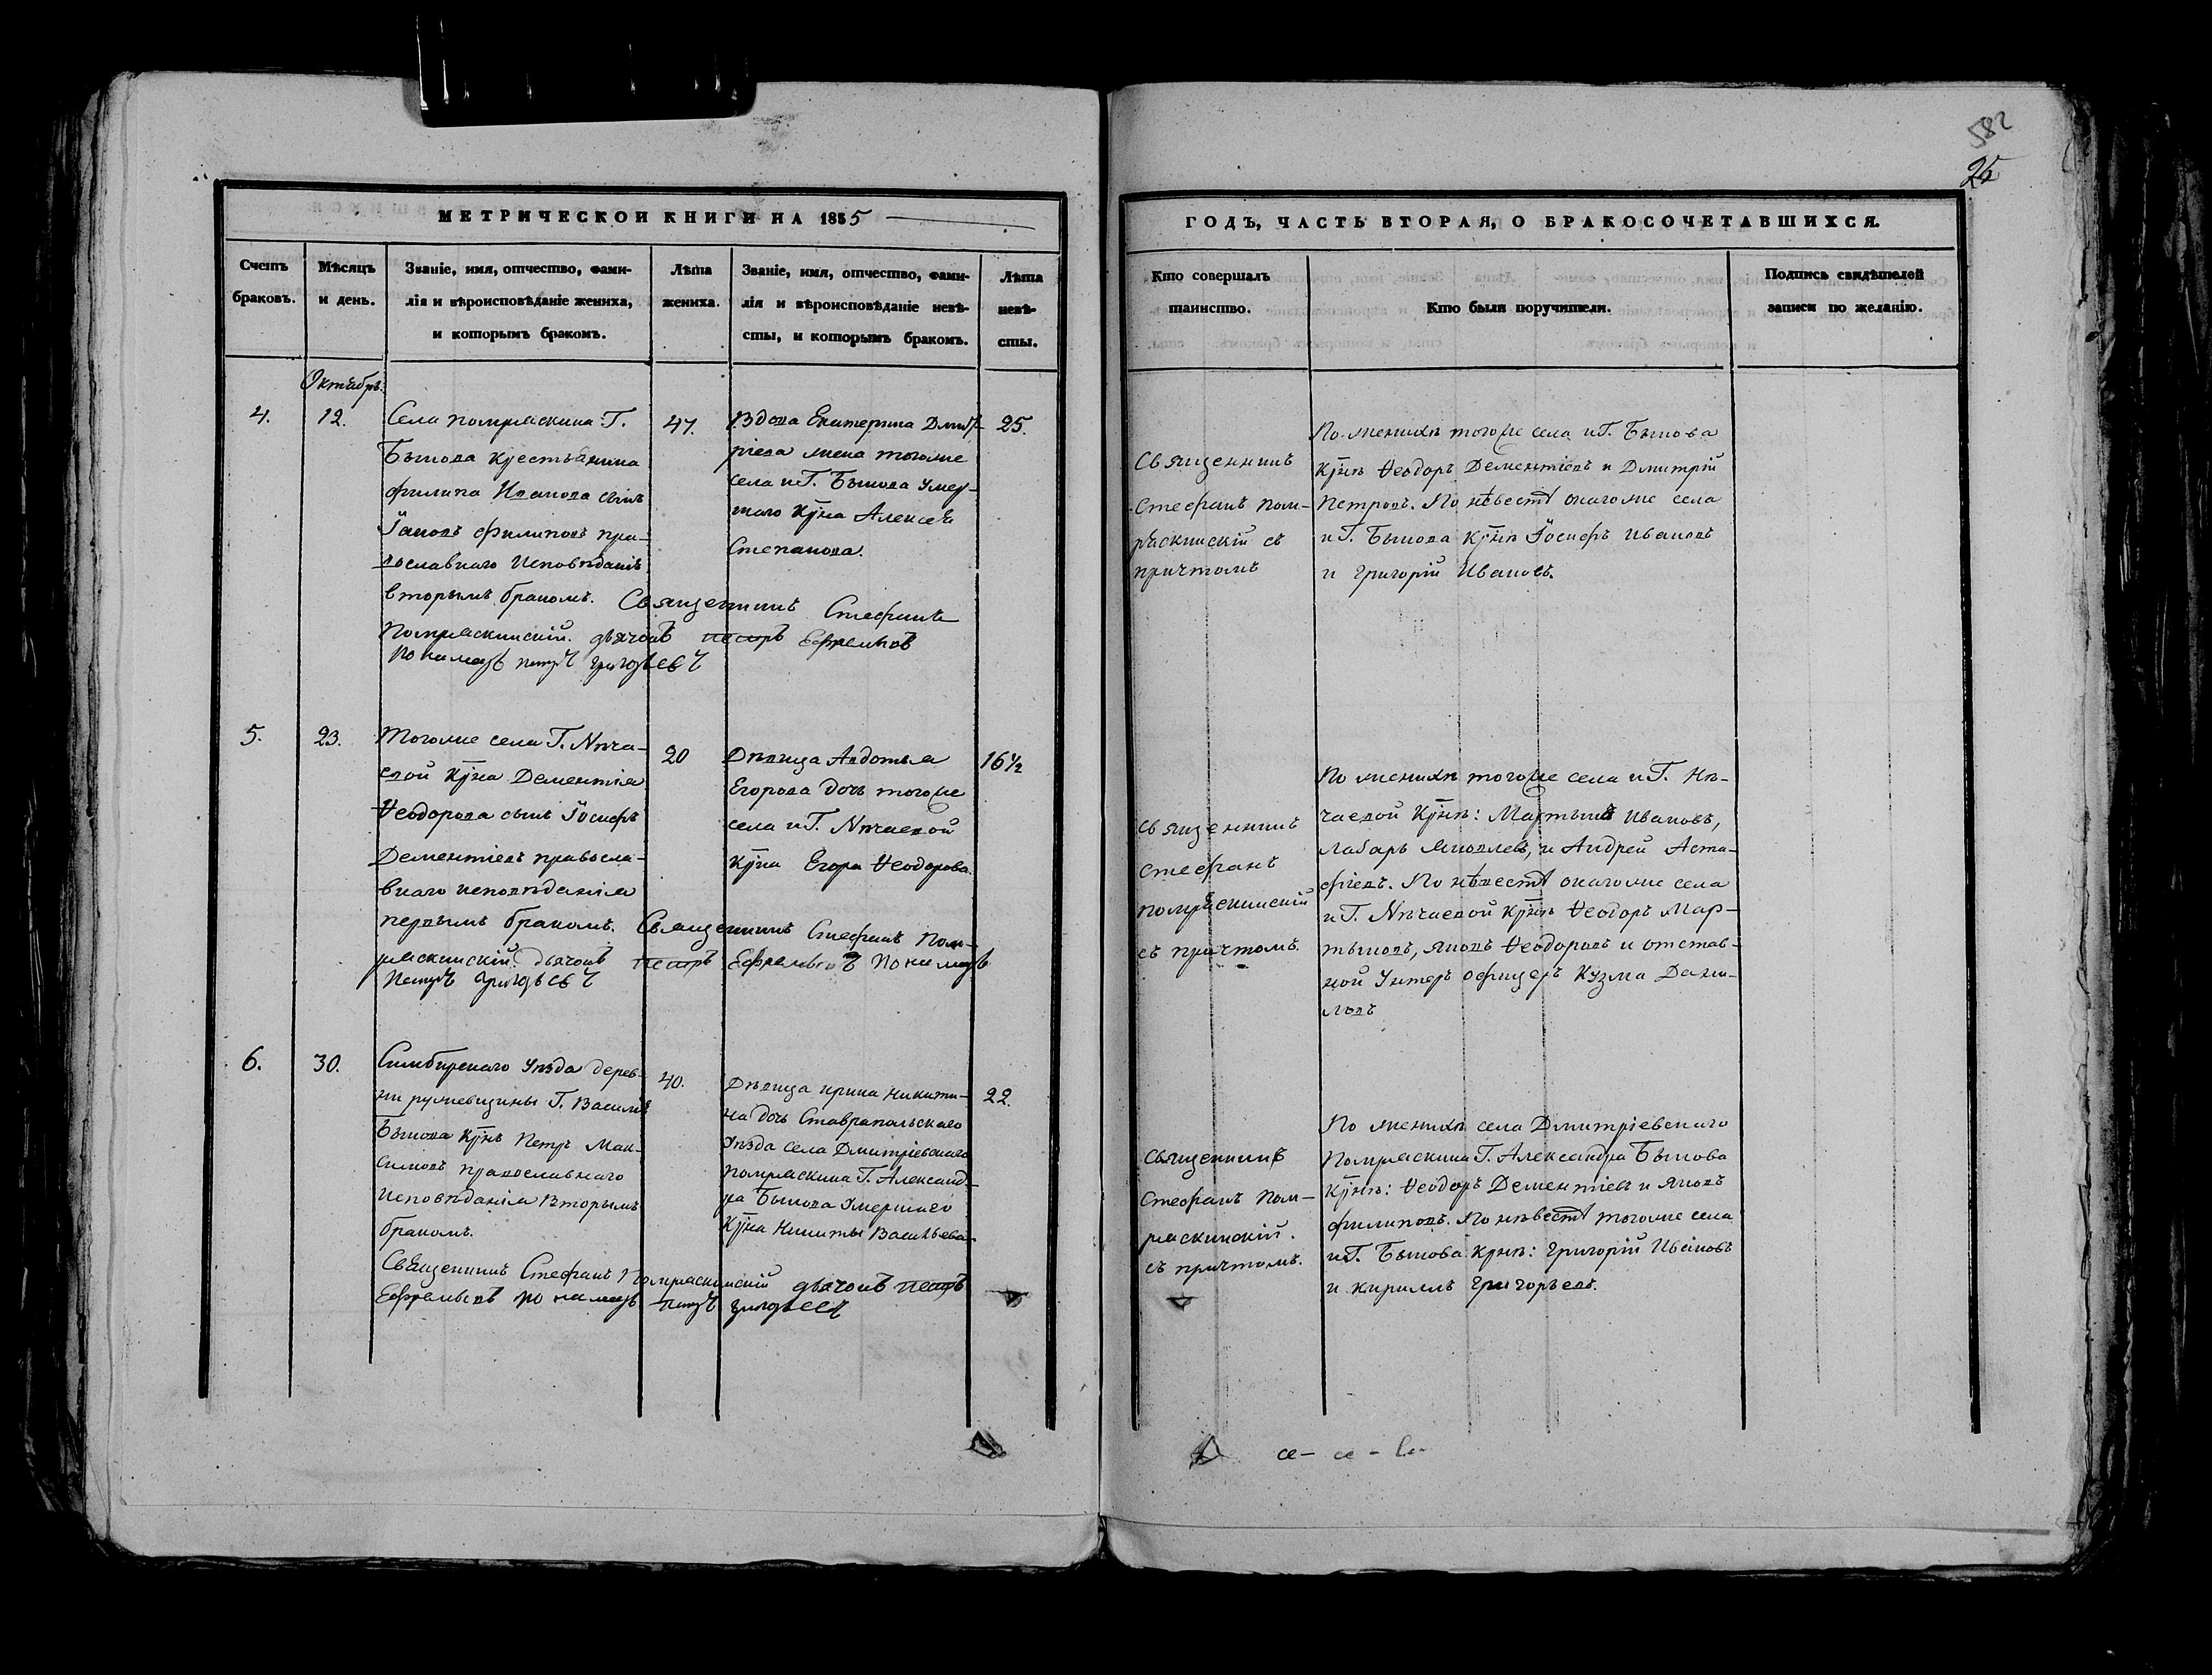 582
25
МЕТРИЧЕСКОЙ КНИГИ НА 1835
ГОДЪ, ЧАСТЬ ВТОРАЯ, О БРАКОСОЧЕТАВШИХСЯ.
Счетъ
браковъ.
Мѣсяцъ
и день.
Званіе, имя, отчество, фами-
лія и вѣроисповѣданіе жениха,
и которымъ бракомъ.
Лѣта
жениха.
Званіе, имя, отчество, фами-
лія и вѣроисповѣданіе невѣ-
сты, и которымъ бракомъ.
Лѣта
невѣ-
сты.
Кто совершалъ
таинство.
Кто были поручители.
Подпись свидѣтелей
записи по желанію.
Октябрь.
4.
12.
Села помряскина Г.
Бычкова крестьянина
филипа Иванова сынъ
Іаковъ филиповъ пра-
вославнаго исповѣданія
вторымъ бракомъ. Священникъ Стефанъ
Помряскинскій. дьячокъ петръ Ефремовъ
пономарь петръ григорьевъ
47.
Вдова Екатерина Дмит-
ріева жена тогоже
села и Г. Бычкова умер-
шаго Крна Алексея
Степанова.
25.
Священникъ
Стефанъ Пом-
ряскинскій съ
причтомъ
По женихѣ тогоже села и Г. Бычкова
Крнѣ Ѳеодоръ Дементіевъ и Дмитрій
Петровъ. По невѣстѣ онагоже села
и Г. Бычкова Крнѣ Іосифъ Ивановъ
и Григорій Ивановъ.
5.
23.
Тогоже села Г. Нѣча-
евой Крна Дементія
Ѳеодорова сынъ Іосифъ
Дементіевъ правосла-
внаго исповѣданія
первымъ бракомъ. Священникъ Стефанъ Пом-
ряскинскій. дьячокъ петръ Ефремовъ пономарь
Петръ григорьевъ
20
Дѣвица Авдотья
Егорова дочь тогоже
села и Г. Нѣчаевой
Крна Егора Ѳеодорова.
16½
священникъ
стефанъ
помряскинскій
съ причтомъ.
По женихѣ тогоже села и Г. Нѣ-
чаевой Крнѣ: Мартынъ Ивановъ,
Лазарь Яковлевъ, и Андрей Аста-
фіевъ. По невѣстѣ онагоже села
и Г. Нѣчаевой Крнѣ Ѳеодоръ Мар-
тыновъ, Яковъ Ѳеодоровъ и отстав-
ной Унтеръ офицеръ Кузма Дани-
ловъ
6.
30.
Симбирскаго Уѣзда дерев-
ни ружевщины Г. Василія
Бычкова Крнъ Петръ Мак-
симовъ православнаго
исповѣданія вторымъ
бракомъ.
Священникъ Стефанъ Помряскинскій дьячокъ петръ
Ефремовъ пономарь петръ григорьевъ
40.
Дѣвица ирина никити-
на дочь Ставропольскаго
Уѣзда села Дмитріевскаго
помряскина Г. Александ-
ра Бычкова Умершаго
Крна Никиты Васильева.
22.
Священникъ
Стефанъ Пом-
ряскинскій.
съ причтомъ.
По женихѣ села Дмитріевскаго
Помряскина Г. Александра Бычкова
Крнѣ: Ѳеодоръ Дементіевъ и Яковъ
филиповъ. По невѣстѣ тогоже села
и Г. Бычкова Крнѣ: Григорій Ивановъ
и кириллъ григорьевъ.